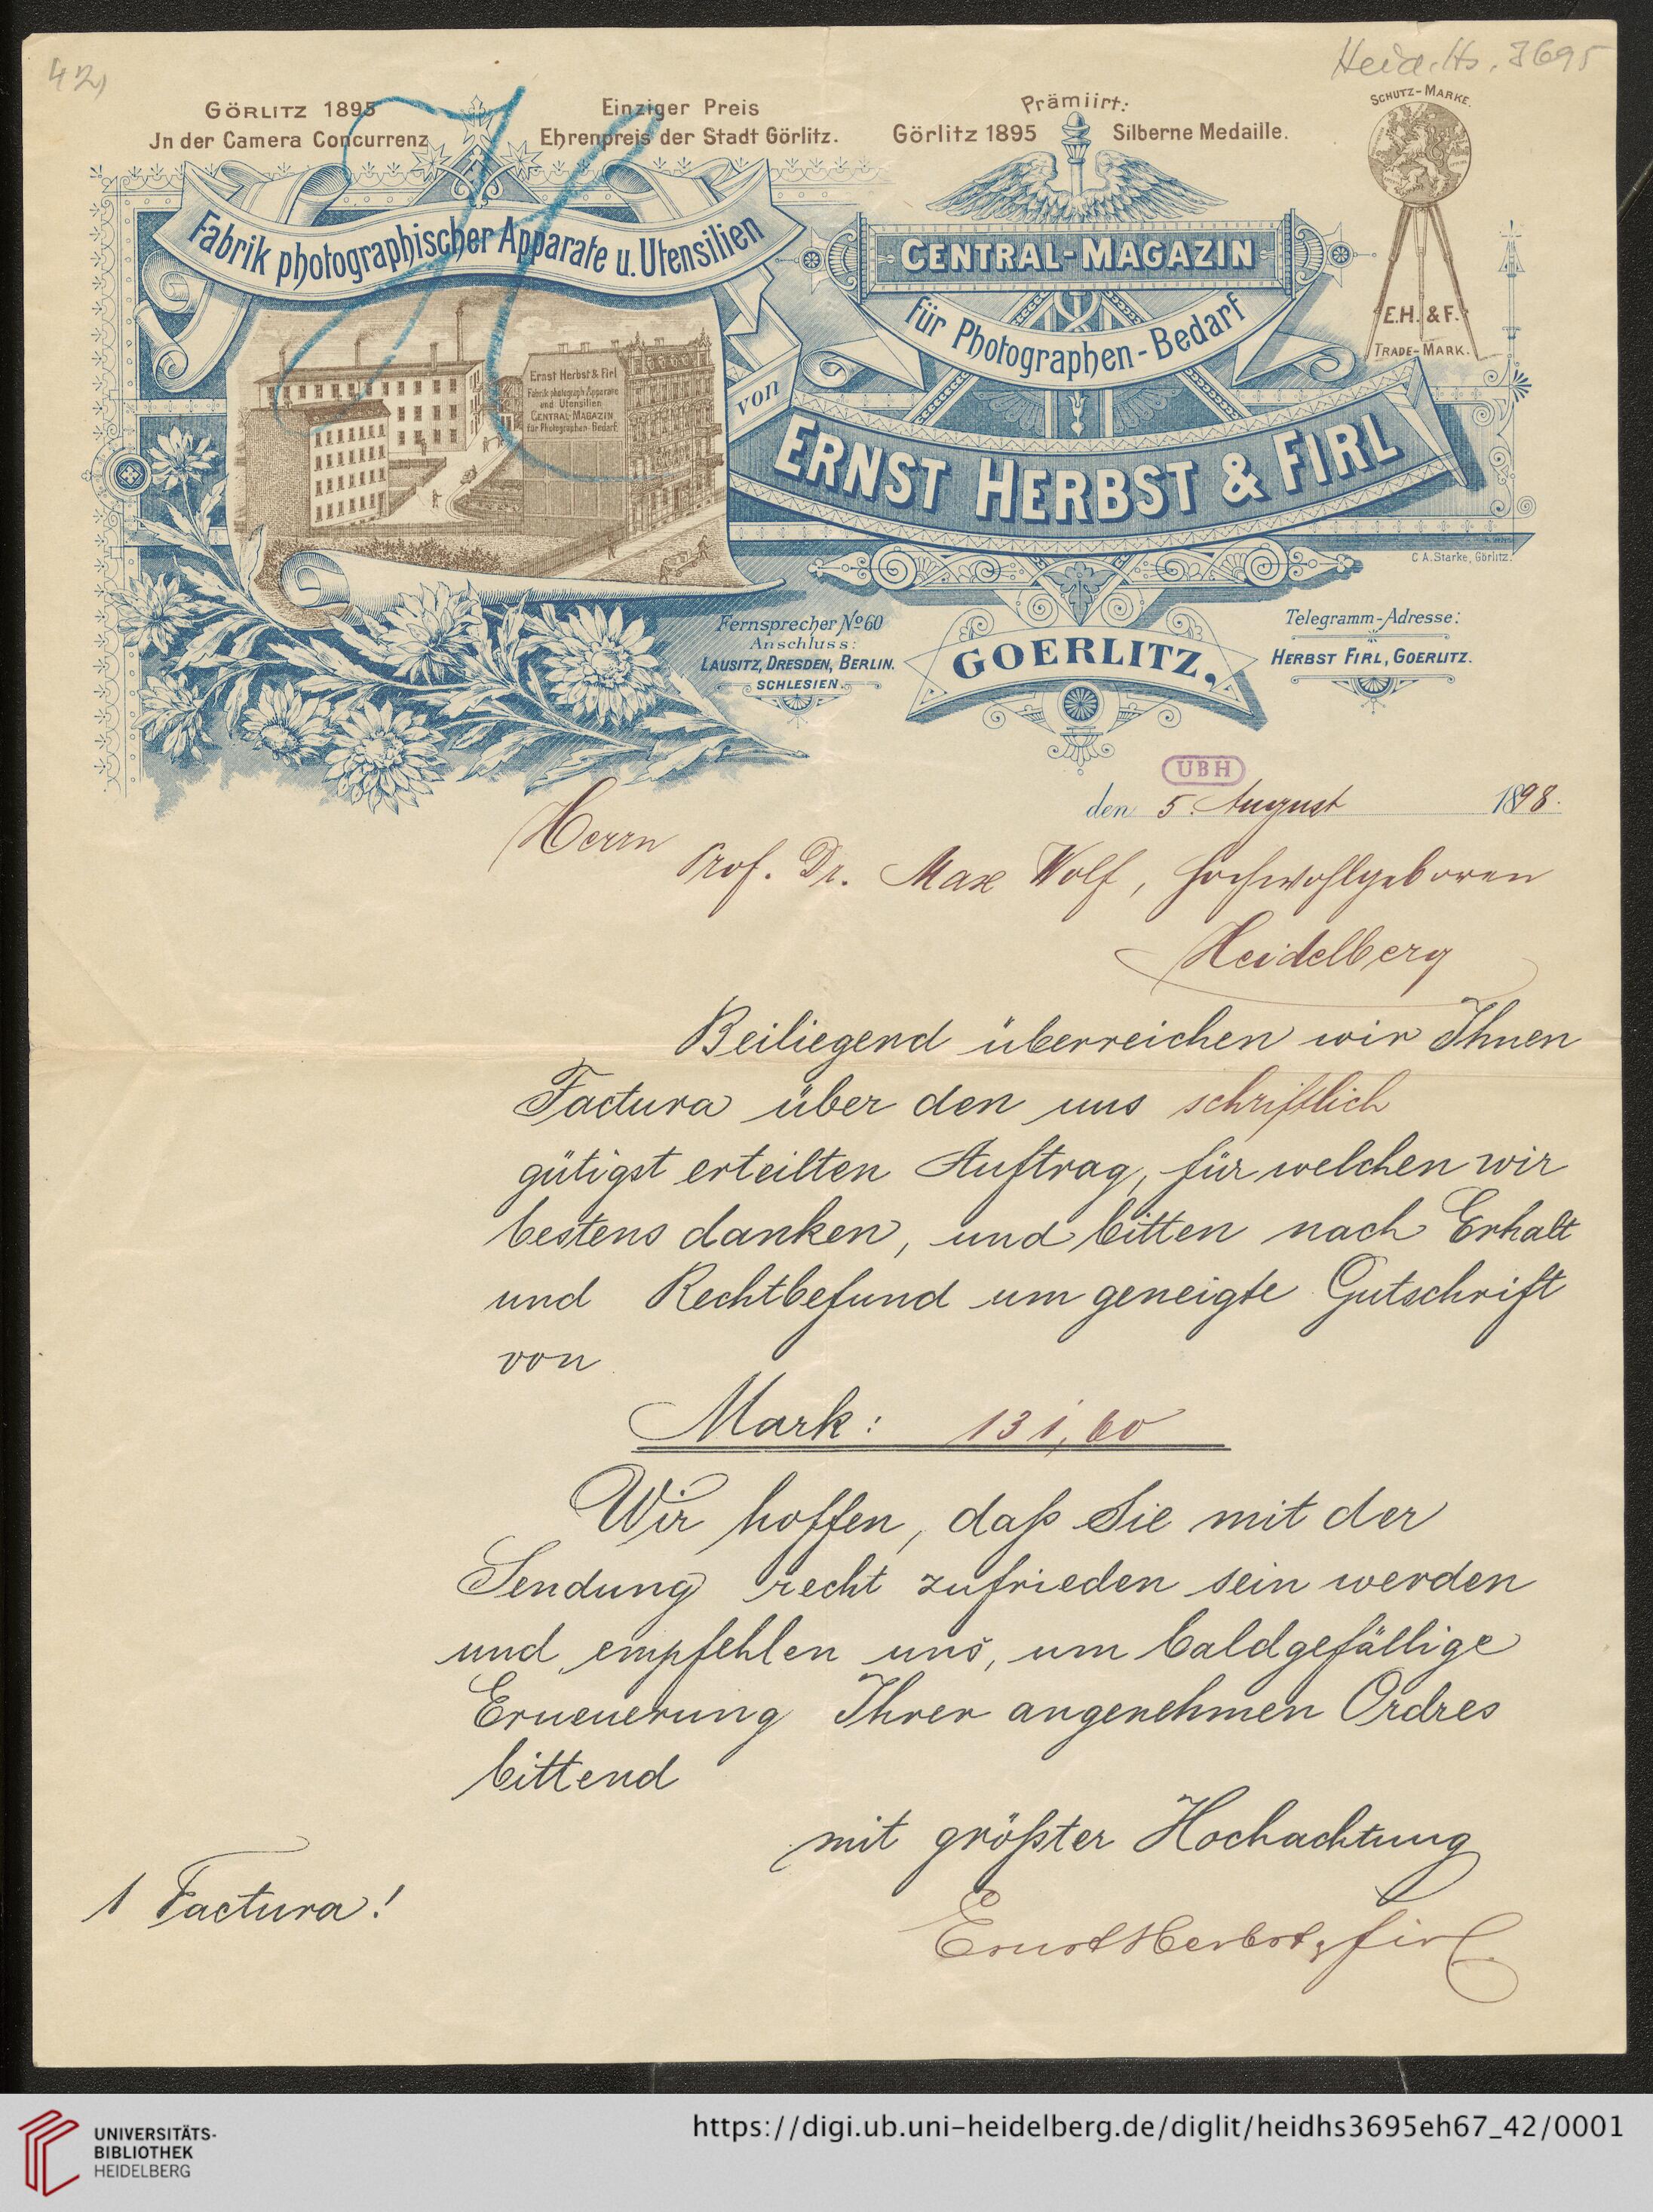 42,
Heid. Hs. 3695
GÖRLITZ 1895
Jn der Camera Concurrenz
Einziger Preis
Ehrenpreis der Stadt Görlitz.
Prämiirt:
Görlitz 1895 Silberne Medaille.
SCHUTZ-MARKE.
Fabrik photographischer Apparate u. Utensilien
CENTRAL-MAGAZIN
für Photographen-Bedarf
E.H. & F.
TRADE-MARK.
Ernst Herbst & Firl
Fabrik photograph. Apparate
und Utensilien
CENTRAL-MAGAZIN
für Photographen-Bedarf.
von
ERNST HERBST & FIRL
C A. Starke, Görlitz.
Fernsprecher No 60
Anschluss:
LAUSITZ, DRESDEN, BERLIN.
SCHLESIEN.
GOERLITZ.
Telegramm-Adresse:
HERBST FIRL, GOERLITZ.
UBH
den 5. August 1898.
Herrn
Prof. Dr. Max Wolf, Hochwohlgeboren
Heidelberg
Beiliegend überreichen wir Ihnen
Factura über den uns schriftlich
gütigst erteilten Auftrag, für welchen wir
bestens danken, und bitten nach Erhalt
und Rechtbefund um geneigte Gutschrift
von
Mark: 131,60
Wir hoffen, daß Sie mit der
Sendung recht zufrieden sein werden
und empfehlen uns, um baldgefällige
Erneuerung Ihrer angenehmen Ordres
bittend
mit größter Hochachtung
1 Factura!
Ernst Herbst & Firl
UNIVERSITÄTS-
BIBLIOTHEK
HEIDELBERG
https://digi.ub.uni-heidelberg.de/diglit/heidhs3695eh67_42/0001